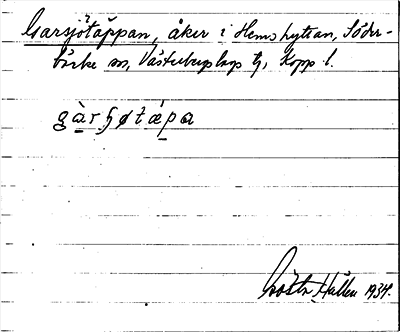 Garsjötäppan, åker i Hemshyttan, Söder-
bärke sn, Västerbergslags tg, Kopp. l.
gàrʃøtäpa
Hallén 1934.